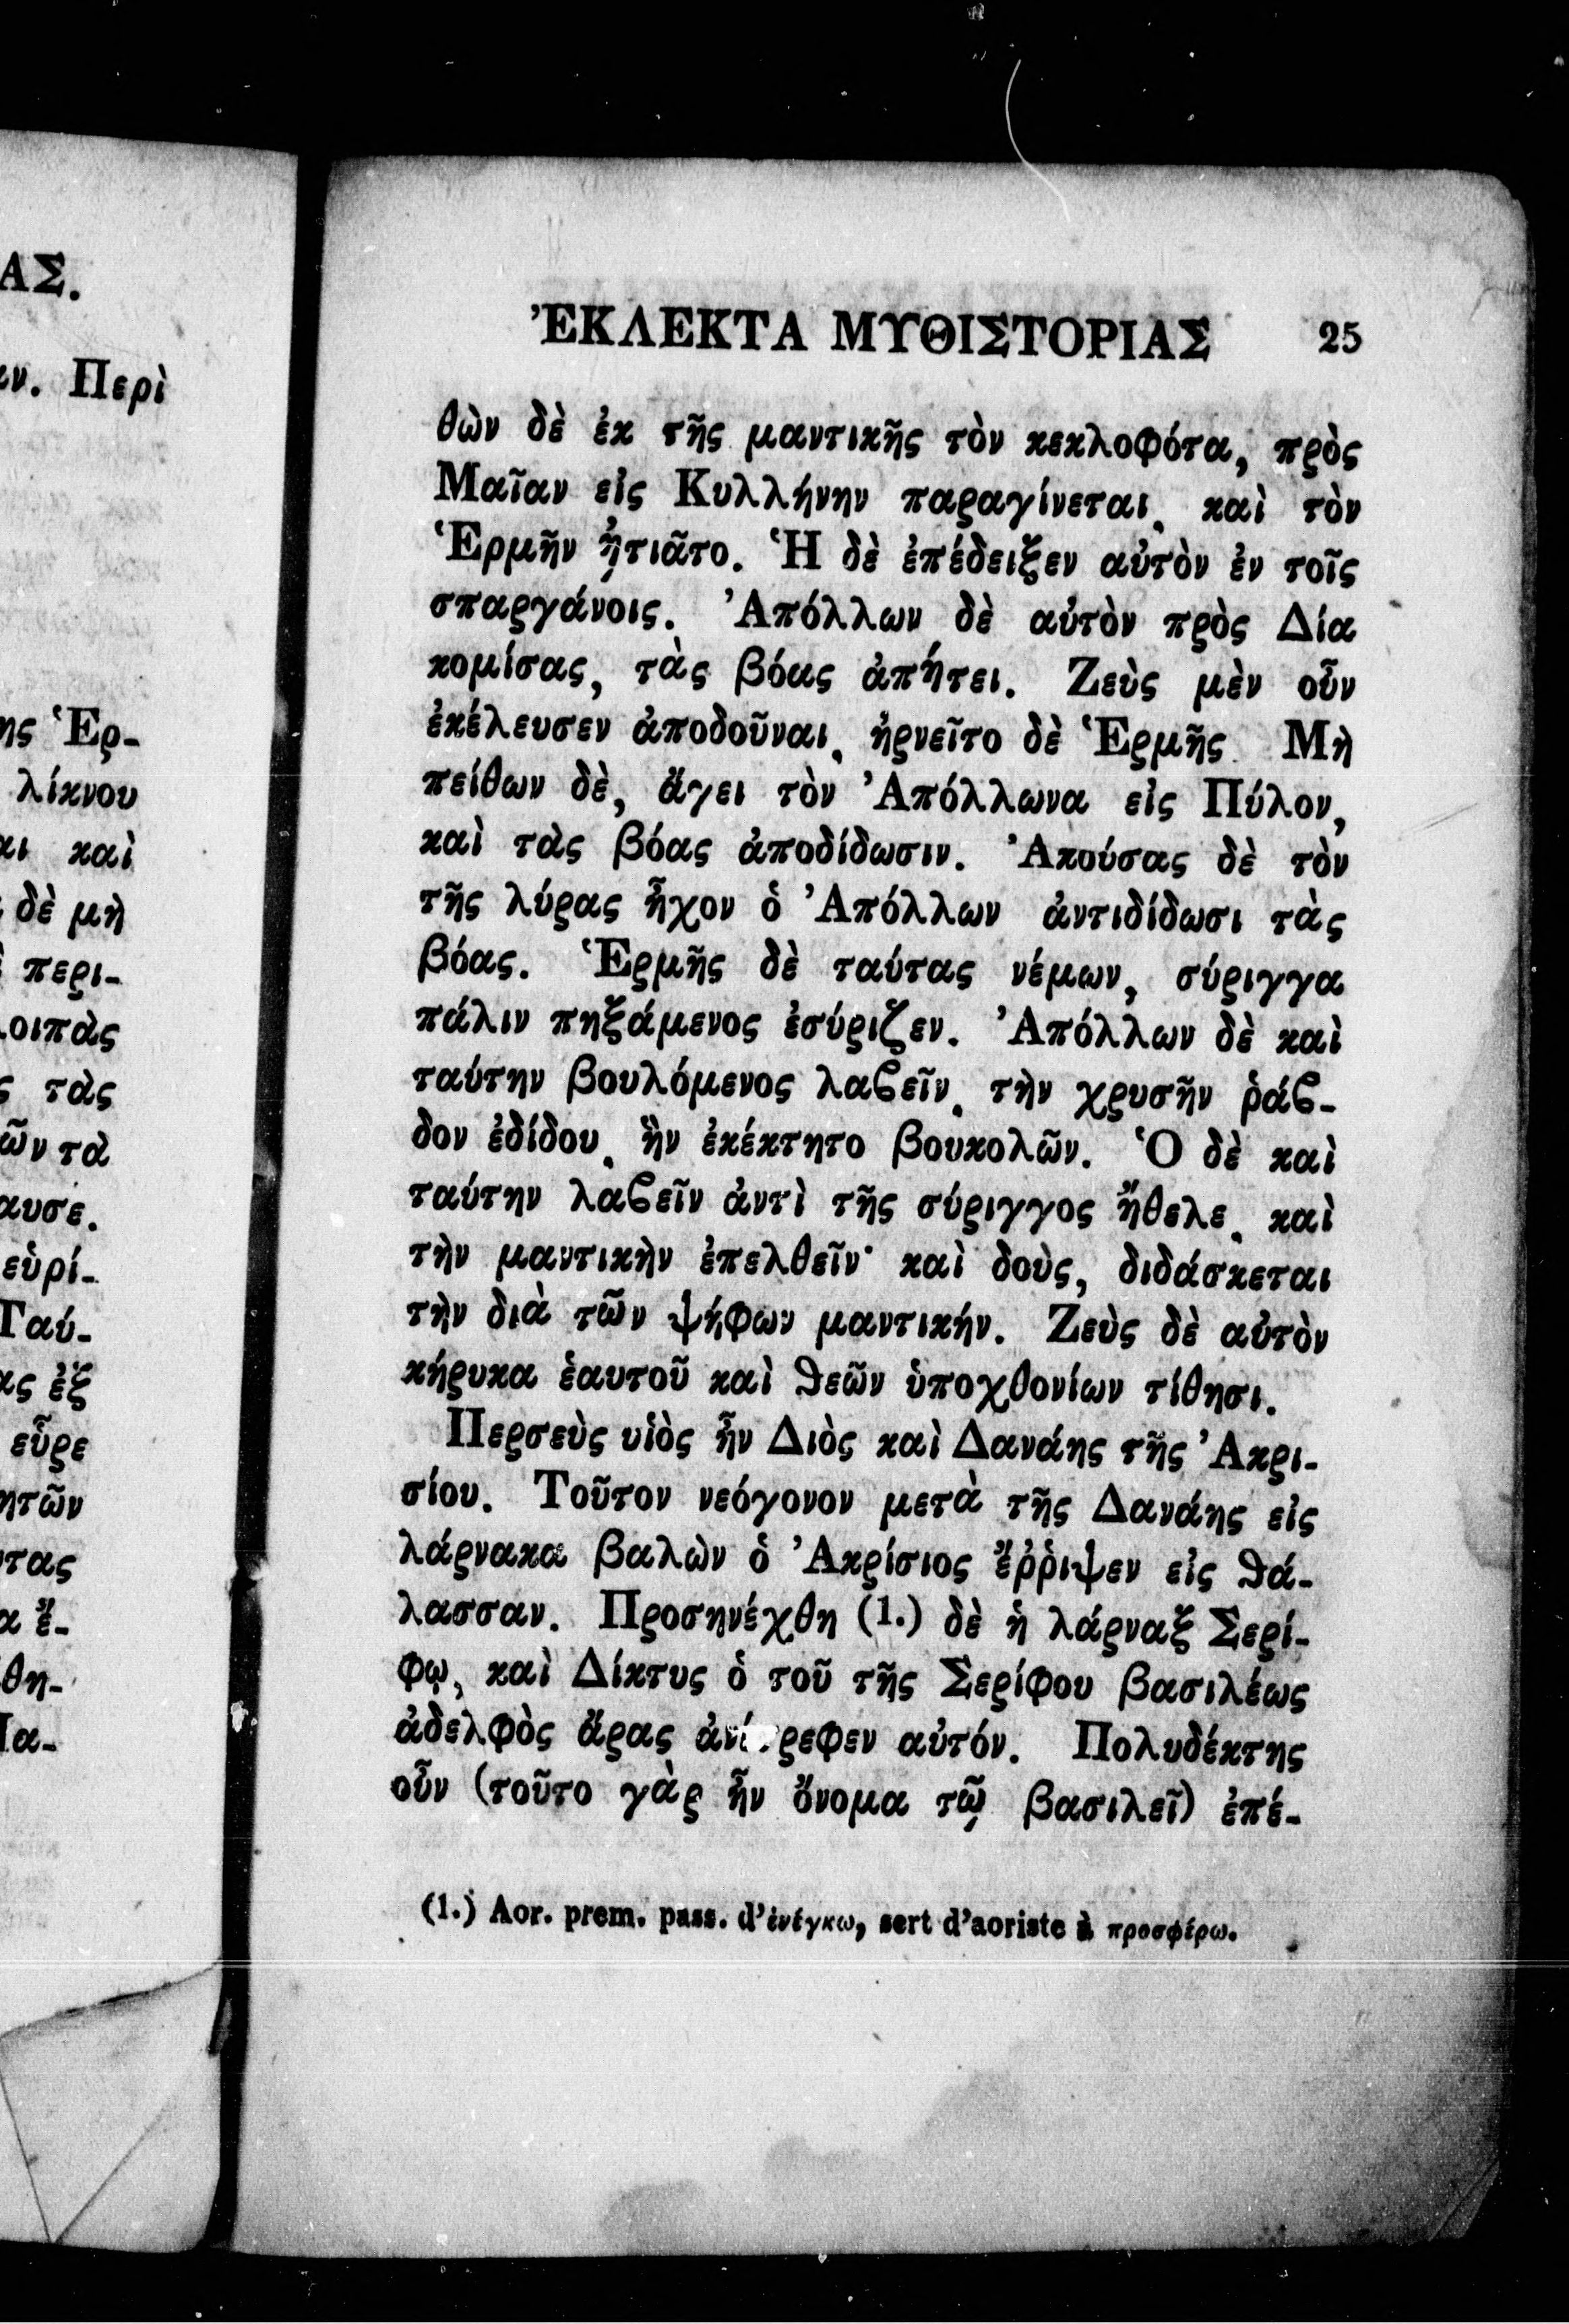 ΑΣ.
ν. Περὶ
ης Ἑρ-
λίκνου
αι καὶ
δὲ μὴ
περι-
λοιπὰς
ς τὰς
ῶν τὰ
αυσε.
εὑρί-
Ταύ-
ας ἐξ
εὗρε
ητῶν
τας
α ἔ-
θη-
Μα-
ἘΚΛΕΚΤΑ ΜΥΘΙΣΤΟΡΙΑΣ 25
θὼν δὲ ἐκ τῆς μαντικῆς τὸν κεκλοφότα, πρὸς
Μαῖαν εἰς Κυλλήνην παραγίνεται, καὶ τὸν
Ἑρμῆν ᾐτιᾶτο. Ἡ δὲ ἐπέδειξεν αὐτὸν ἐν τοῖς
σπαργάνοις. Ἀπόλλων δὲ αὐτὸν πρὸς Δία
κομίσας, τὰς βόας ἀπήτει. Ζεὺς μὲν οὖν
ἐκέλευσεν ἀποδοῦναι, ἠρνεῖτο δὲ Ἑρμῆς. Μὴ
πείθων δὲ, ἄγει τὸν Ἀπόλλωνα εἰς Πύλον,
καὶ τὰς βόας ἀποδίδωσιν. Ἀκούσας δὲ τὸν
τῆς λύρας ἦχον ὁ Ἀπόλλων ἀντιδίδωσι τὰς
βόας. Ἑρμῆς δὲ ταύτας νέμων, σύριγγα
πάλιν πηξάμενος ἐσύριζεν. Ἀπόλλων δὲ καὶ
ταύτην βουλόμενος λαϐεῖν, τὴν χρυσῆν ῥάϐ-
δον ἐδίδου, ἣν ἐκέκτητο βουκολῶν. Ὁ δὲ καὶ
ταύτην λαϐεῖν ἀντὶ τῆς σύριγγος ἤθελε, καὶ
τὴν μαντικὴν ἐπελθεῖν· καὶ δοὺς, διδάσκεται
τὴν διὰ τῶν ψήφων μαντικήν. Ζεὺς δὲ αὐτὸν
κήρυκα ἑαυτοῦ καὶ ϑεῶν ὑποχθονίων τίθησι.
Περσεὺς υἱὸς ἦν Διὸς καὶ Δανάης τῆς Ἀκρι-
σίου. Τοῦτον νεόγονον μετὰ τῆς Δανάης εἰς
λάρνακα βαλὼν ὁ Ἀκρίσιος ἔῤῥιψεν εἰς ϑά-
λασσαν. Προσηνέχθη (1.) δὲ ἡ λάρναξ Σερί-
φῳ, καὶ Δίκτυς ὁ τοῦ τῆς Σερίφου βασιλέως
ἀδελφὸς ἄρας αὐτόν. Πολυδέκτης
οὖν (τοῦτο γὰρ ἦν ὄνομα τῷ βασιλεῖ) ἐπέ-
(1.) Aor. prem. pass. d'ἐνέγκω, sert d'aoriste à προσφέρω.